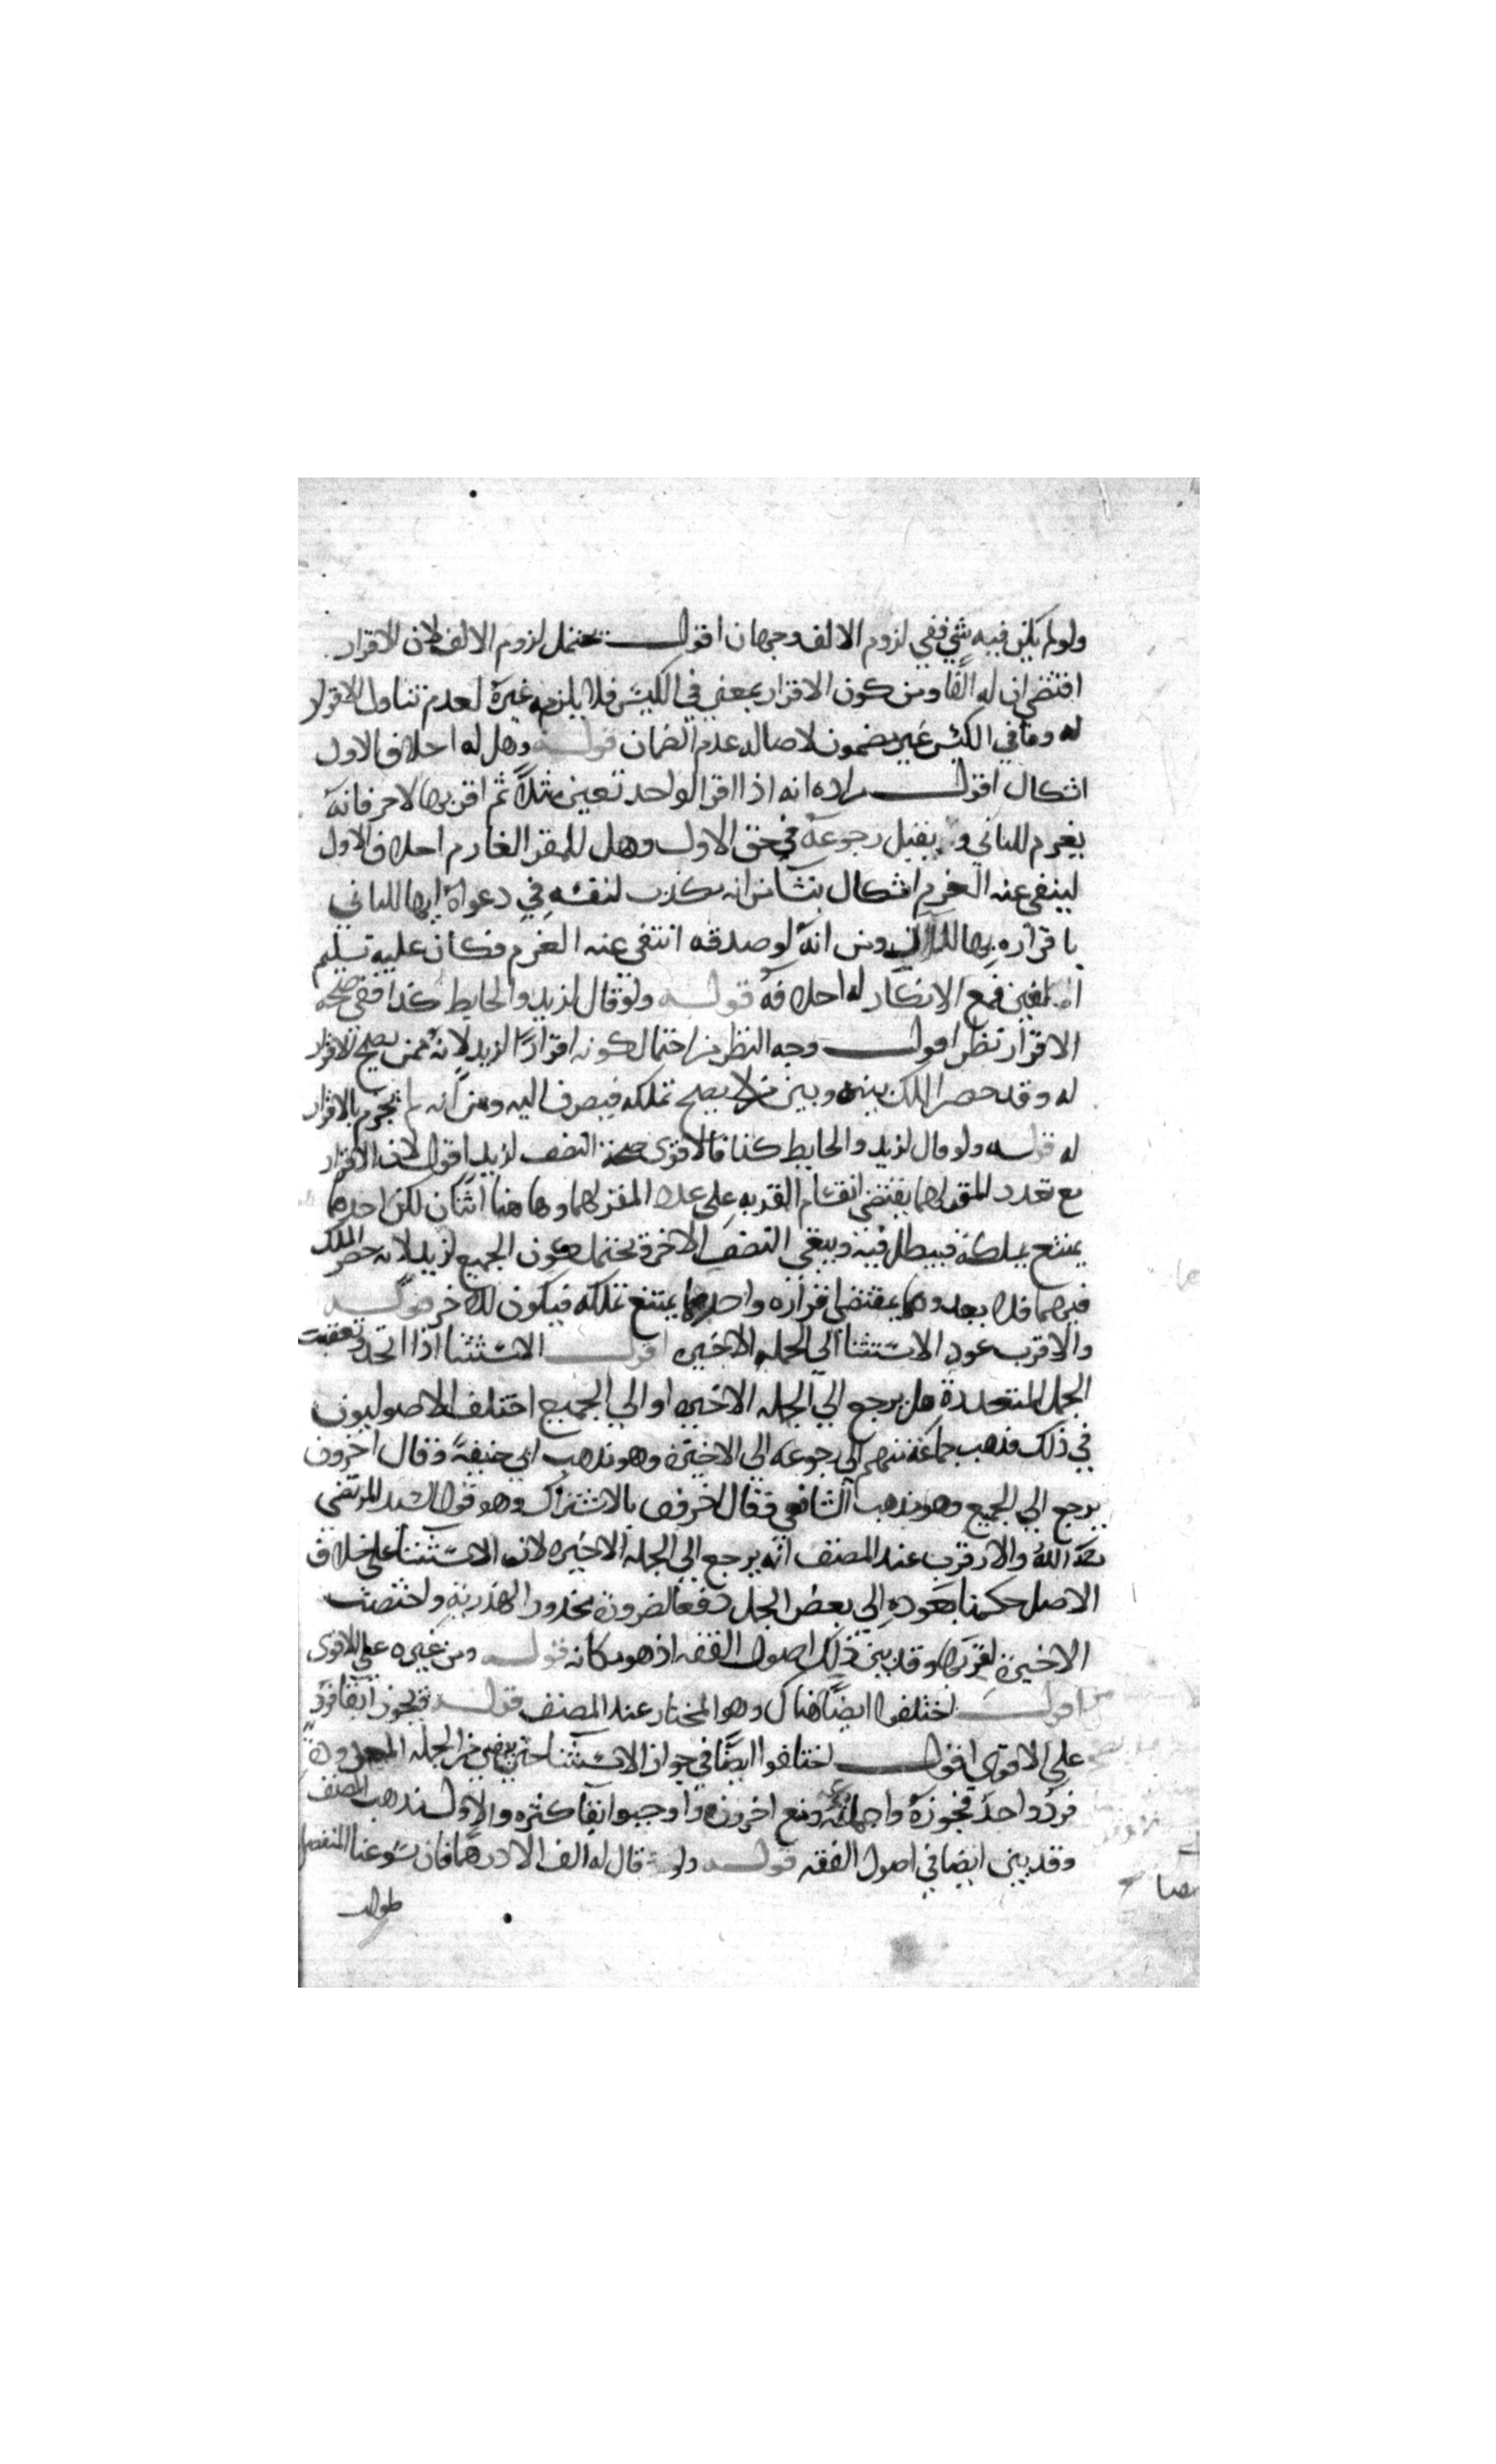 ولو لم يكن فيه شي ففي لزوم الالف وجهان اقول يحتمل لزوم الالف لان الاقرار
اقتضي ان له الفا ومن كون الاقرار بمعني في الكيس فلا يلزمه غيره لعدم تناول الاقرار
له وما في الكيس غير مضمون لاصاله عدم الضمان قوله وهل له احلاف الاول
اشكال اقول مراده انه اذا اقر لواحد بعين مثلا ثم اقر بها لاخر فانه
يغرم للثاني ولا يقبل رجوعه في حق الاول وهل للمقر الغارم احلاف الاول
لينفي عنه الغرم اشكال ينشا من انه مكذب لنفسه في دعواه انها للثاني
باقراره بها للاول ومن انه لو صدقه انتفي عنه الغرم فكان عليه تسليم
العين فمع الانكار له احلافه قوله ولو قال لزيد والحايط كذا ففي صحه
الاقرار نظر اقول وجه النظر من احتمال كونه اقرارا لزيد لانه ممن يصح الاقرار
له وقد حصر الملك بينه وبين من لا يصح تملكه فيصرف اليه ومن انه لم يجزم بالاقرار
له قوله ولو قال لزيد والحايط كذا فالاقوى صحة النصف لزيد اقول لان الاقرار
مع تعدد المقر لهما يقتضي انقسام المقر به على عدد المقر لهما وها هنا اثنان لكن احدهما
يمتنع تملكه فيبطل فيه ويبقي النصف الاخر ويحتمل كون الجميع لزيد لانه حصر الملك
فيهما فلا يعدوهما بمقتضى اقراره واحدهما يمتنع تملكه فيكون للاخر قوله
والاقرب عود الاستثنا الى الجمله الاخيره اقول الاستثنا اذا اتحد وتعقبت
الجمل المتعددة هل يرجع الي الجمله الاخيره او الي الجميع اختلف الاصوليون
في ذلك فذهب جماعة منهم الى رجوعه الى الاخيره وهو مذهب ابي حنيفة وقال اخرون
يرجع الي الجميع وهو مذهب الشافعي وقال اخرون بالاشتراك وهو قول السيد المرتضي
رحمه الله والاقرب عند المصنف انه يرجع الي الجمله الاخيره لان الاستثنا على خلاف
الاصل حكمنا بعوده الي بعض الجمل دفعا لضرورة محذور الهذرية واختصت
الاخيرة لقربها وقد بين ذلك في اصول الفقه اذ هو مكانه قوله ومن غيره علي الاقوى
اقول اختلفوا ايضا هناك وهو المختار عند المصنف قوله فيجوز ابقا فرد
علي الاقوي اقول اختلفوا ايضا في جواز الاستثنا حتي يبقي من الجمله المعدودة
فرد واحد فجوزه جماعة ومنع اخرون واوجبوا ابقا كثره والاول مذهب المصنف
وقد بين ايضا في اصول الفقه قوله ولو قال له الف الا درهما فان سوغنا المنفصل
طولب